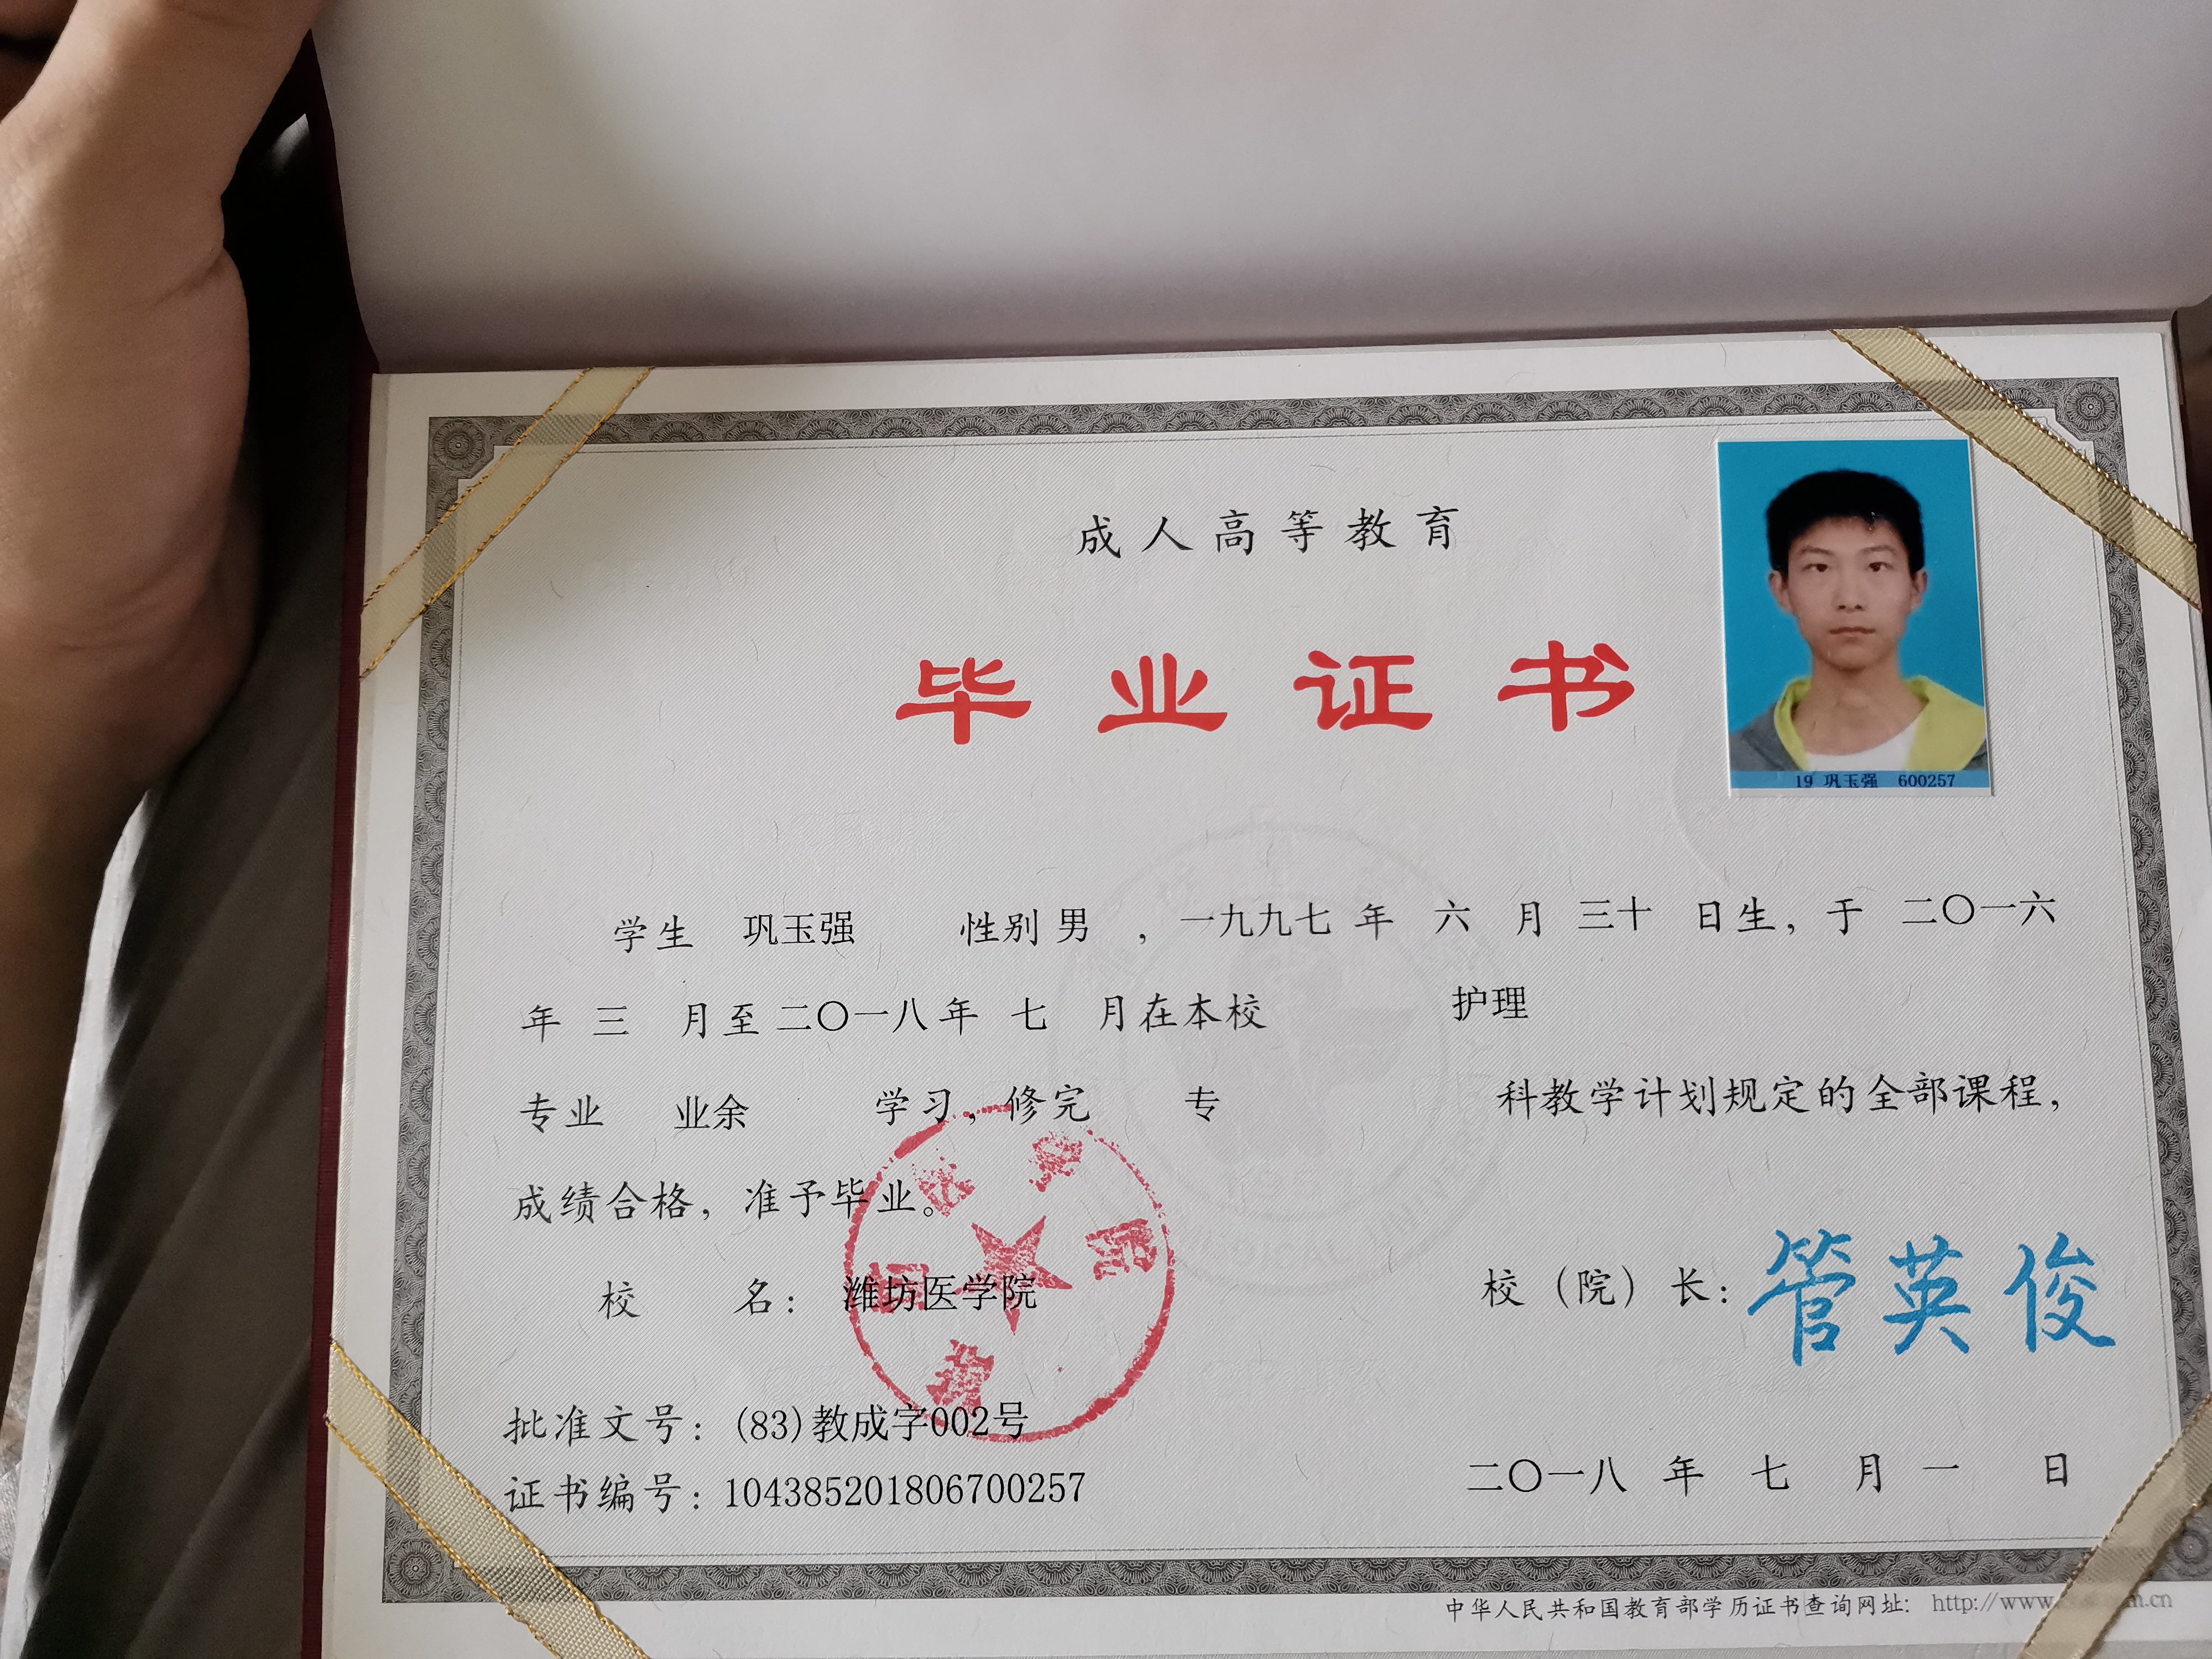 成人高等教育
毕业证书
19 巩玉强 600257
学生 巩玉强 性别 男 ，一九九七 年 六 月 三十 日生，于 二〇一六
年 三 月至二〇一八年 七 月在本校 护理
专业 业余 学习，修完 专 科教学计划规定的全部课程，
成绩合格，准予毕业。
校 名：潍坊医学院
校（院）长：管英俊
批准文号：(83)教成字002号
证书编号：104385201806700257
二〇一八 年 七 月 一 日
中华人民共和国教育部学历证书查询网址： http://www.